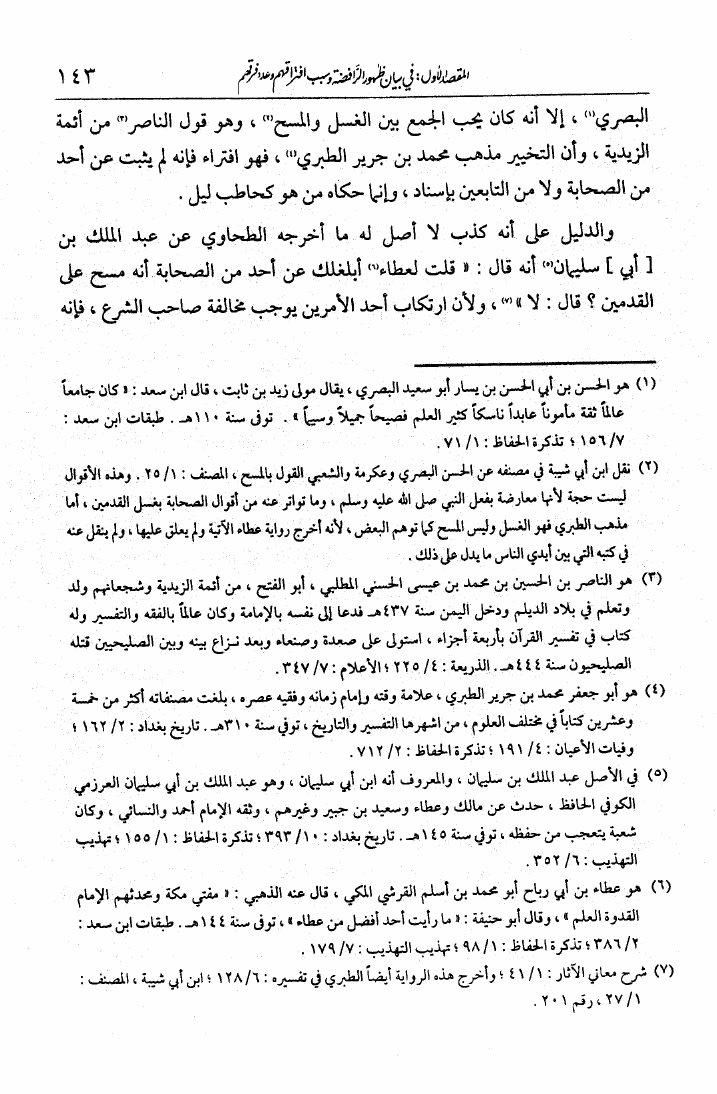 المقصد الأول : في بيان ظهور الرافضة وسبب افتراقهم وعدد فرقهم ١٤٣
البصري(١) ، إلا أنه كان يحب الجمع بين الغسل والمسح(٢) ، وهو قول الناصر(٣) من أئمة
الزيدية ، وأن التخيير مذهب محمد بن جرير الطبري(٤) ، فهو افتراء فإنه لم يثبت عن أحد
من الصحابة ولا من التابعين بإسناد ، وإنما حكاه من هو كحاطب ليل .
والدليل على أنه كذب لا أصل له ما أخرجه الطحاوي عن عبد الملك بن
[ أبي ] سليمان(٥) أنه قال : « قلت لعطاء(٦) أبلغلك عن أحد من الصحابة أنه مسح على
القدمين ؟ قال : لا »(٧) ، ولأن ارتكاب أحد الأمرين يوجب مخالفة صاحب الشرع ، فإنه
(١) هو الحسن بن أبي الحسن بن يسار أبو سعيد البصري ، يقال مولى زيد بن ثابت ، قال ابن سعد : « كان جامعاً
عالماً ثقة مأموناً عابداً ناسكاً كثير العلم فصيحاً جميلاً وسيماً » . توفى سنة ١١٠هـ . طبقات ابن سعد :
٧/ ١٥٦ ؛ تذكرة الحفاظ : ١/ ٧١ .
(٢) نقل ابن أبي شيبة في مصنفه عن الحسن البصري وعكرمة والشعبي القول بالمسح ، المصنف : ١/ ٢٥ . وهذه الأقوال
ليست حجة لأنها معارضة بفعل النبي صلى الله عليه وسلم ، وما تواتر عنه من أقوال الصحابة بغسل القدمين ، أما
مذهب الطبري فهو الغسل وليس المسح كما توهم البعض ، لأنه أخرج رواية عطاء الآتية ولم يعلق عليها ، ولم ينقل عنه
في كتبه التي بين أيدي الناس ما يدل على ذلك .
(٣) هو الناصر بن الحسين بن محمد بن عيسى الحسني المطلبي ، أبو الفتح ، من أئمة الزيدية وشجعانهم ولد
وتعلم في بلاد الديلم ودخل اليمن سنة ٤٣٧هـ فدعا إلى نفسه بالإمامة وكان عالماً بالفقه والتفسير وله
كتاب في تفسير القرآن بأربعة أجزاء ، استولى على صعدة وصنعاء وبعد نـزاع بينه وبين الصليحيين قتله
الصليحيون سنة ٤٤٤هـ . الذريعة : ٤/ ٢٢٥ ؛ الأعلام : ٧/ ٣٤٧ .
(٤) هو أبو جعفر محمد بن جرير الطبري ، علامة وقته وإمام زمانه وفقيه عصره ، بلغت مصنفاته أكثر من خمسة
وعشرين كتاباً في مختلف العلوم ، من اشهرها التفسير والتاريخ ، توفي سنة ٣١٠هـ . تاريخ بغداد : ٢/ ١٦٢ ؛
وفيات الأعيان : ٤/ ١٩١ ؛ تذكرة الحفاظ : ٢/ ٧١٢ .
(٥) في الأصل عبد الملك بن سليمان ، والمعروف أنه ابن أبي سليمان ، وهو عبد الملك بن أبي سليمان العرزمي
الكوفي الحافظ ، حدث عن مالك وعطاء وسعيد بن جبير وغيرهم ، وثقه الإمام أحمد والنسائي ، وكان
شعبة يتعجب من حفظه ، توفي سنة ١٤٥هـ . تاريخ بغداد : ١٠/ ٣٩٣ ؛ تذكرة الحفاظ : ١/ ١٥٥ ؛ تهذيب
التهذيب : ٦/ ٣٥٢ .
(٦) هو عطاء بن أبي رباح أبو محمد بن أسلم القرشي المكي ، قال عنه الذهبي : « مفتي مكة ومحدثهم الإمام
القدوة العلم » ، وقال أبو حنيفة : « ما رأيت أحد أفضل من عطاء » ، توفى سنة ١٤٤هـ . طبقات ابن سعد :
٢/ ٣٨٦ ؛ تذكرة الحفاظ : ١/ ٩٨ ؛ تهذيب التهذيب : ٧/ ١٧٩ .
(٧) شرح معاني الآثار : ١/ ٤١ ؛ وأخرج هذه الرواية أيضاً الطبري في تفسيره : ٦/ ١٢٨ ؛ ابن أبي شيبة ، المصنف :
١/ ٢٧ ، رقم ٢٠١ .